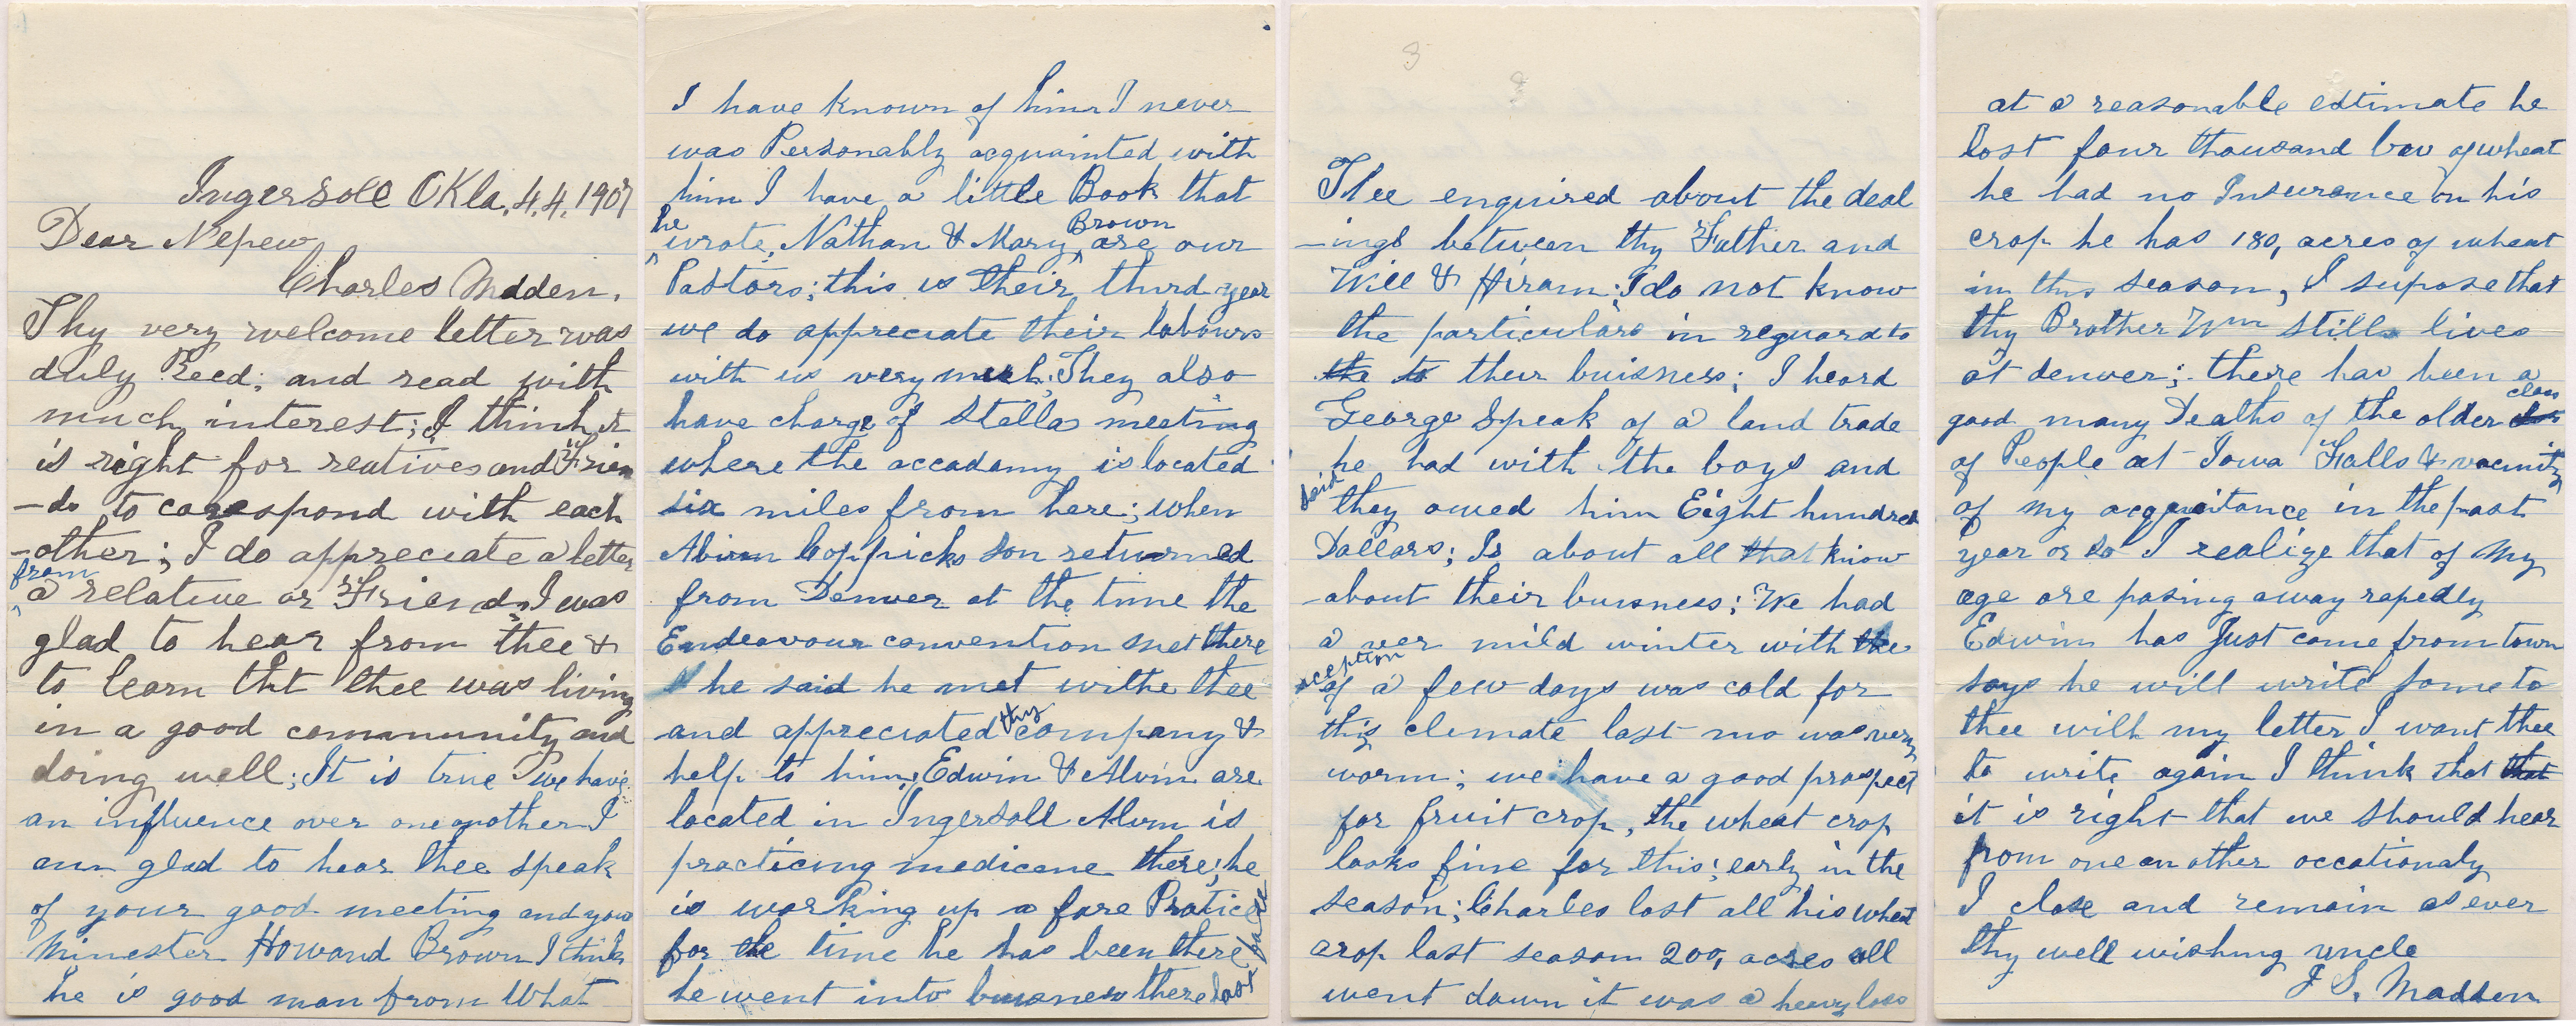 Ingersoll Okla, 4,4, 1907
Dear Nepew
Charles Madden.
Thy very welcome letter was
duly Recd; and read with
much interest; I think it
is right for reatives and Frien
-ds to corespond with each
-other; I do appreciate a letter
from
a relative or Friend, I was
glad to hear from thee &
to learn tht thee was living
in a good community and
doing well; It is true we have
an influence over one another I
am glad to hear thee speak
of your good meeting and your
Minester Howard Brown I think
he is good man from What
I have known of him I never
was Personably acquainted with
him I have a little Book that
he wrote, Nathan & Mary Brown are our
Pastors; this is their third year
we do appreciate their labours
with us very much; They also
have charge of Stella meeting
where the accadamy is located
six miles from here; when
Abiram Coppicks son returned
from Denver at the time the
Endeavour convention met there
he said he met withe thee
and appreciated thy company &
help to him; Edwin & Alvin are
located in Ingersoll Alvin is
practicing medicene there; he
is working up a fare Pratice
for the time he has been there
he went into buisness there last
3
Thee enquired about the deal
-ings between thy Father and
Will & Hiram; I do not know
the particulars in reguard to
the to their buisness; I heard
George Speak of a land trade
he had with the boys and
said
they owed him Eight hundred
Dallars; Is about all that know
about their buisness; We had
a ver mild winter with the
exception
of a few days was cold for
this climate last mo was very
worm; we have a good prospect
for fruit crop, the wheat crop
looks fine for this; early in the
season; Charles lost all his wheat
crop last season 200, acres all
went down it was a heavy loss
at a reasonable estimate he
lost four thousand bu of wheat
he had no Insurance on his
crop he has 180, acres of wheat
in this season, I supose that
thy Brother Wm still lives
at denver; there has been a
good many Deaths of the older class
of People at Iowa Falls & vacinity
of my acquaitance in the past
year or so I realize that of my
age are pasing away rapedly
Edwin has Just come from town
says he will write some to
thee with my letter I want thee
to write again I think that that
it is right that we should hear
from one an other occationaly
I close and remain as ever
thy well wishing uncle
J S. Madden